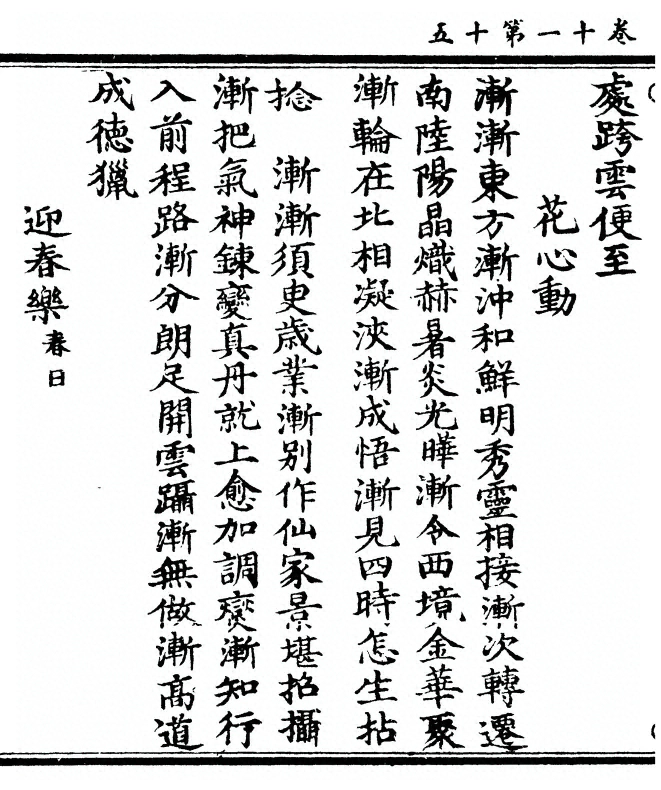 卷十一第十五
處跨雲便至
花心動
漸漸東方漸沖和鮮明秀靈相接漸次轉遷
南陸陽晶熾赫暑炎光曄漸令西境金華聚
漸輪在北相凝浹漸成悟漸見四時怎生拈
捻　漸漸須吏歳業漸別作仙家景堪招攝
漸把氣神鍊變真丹就上愈加調燮漸知行
入前程路漸分朗足開雲躡漸無做漸高道
成德獵
迎春樂春日